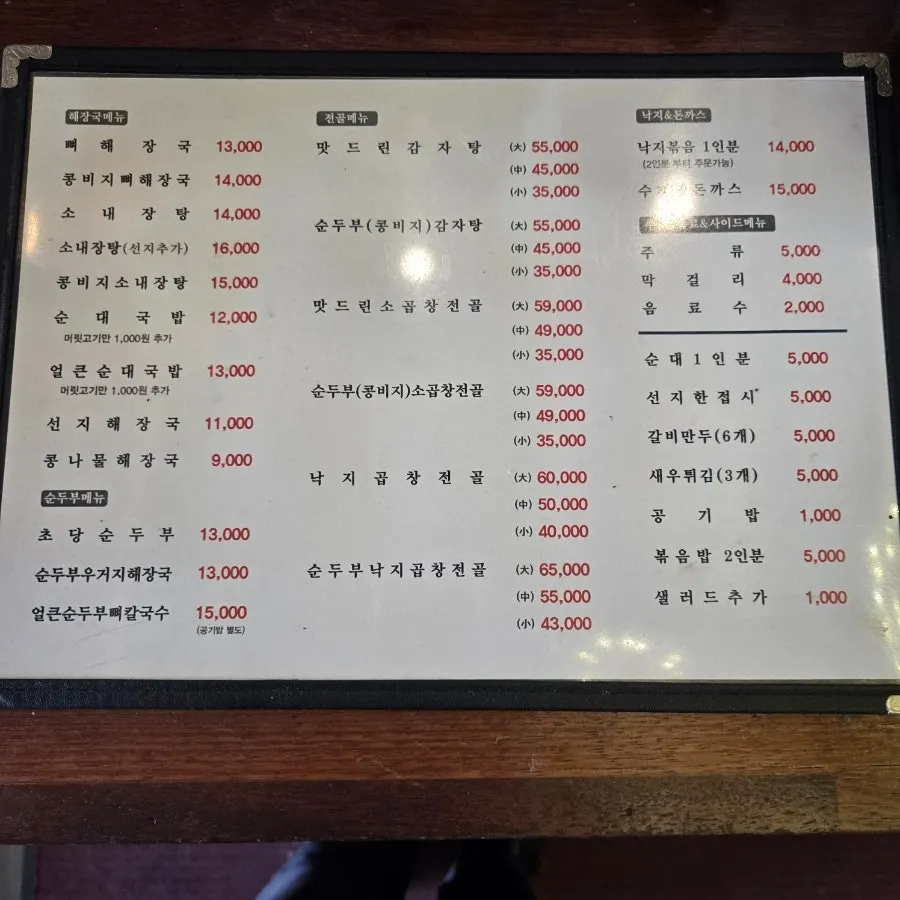 해장국메뉴
뼈해장국 13,000
콩비지뼈해장국 14,000
소내장탕 14,000
소내장탕(선지추가) 16,000
콩비지소내장탕 15,000
순대국밥 12,000
머릿고기만 1,000원 추가
얼큰순대국밥 13,000
머릿고기만 1,000원 추가
선지해장국 11,000
콩나물해장국 9,000
순두부메뉴
초당순두부 13,000
순두부우거지해장국 13,000
얼큰순두부뼈칼국수 15,000
(공기밥 별도)
전골메뉴
맛드린감자탕 (大) 55,000
(中) 45,000
(小) 35,000
순두부(콩비지)감자탕 (大) 55,000
(中) 45,000
(小) 35,000
맛드린소곱창전골 (大) 59,000
(中) 49,000
(小) 35,000
순두부(콩비지)소곱창전골 (大) 59,000
(中) 49,000
(小) 35,000
낙지곱창전골 (大) 60,000
(中) 50,000
(小) 40,000
순두부낙지곱창전골 (大) 65,000
(中) 55,000
(小) 43,000
낙지&돈까스
낙지볶음 1인분 14,000
(2인분 부터 주문가능)
돈까스 15,000
&사이드메뉴
주류 5,000
막걸리 4,000
음료수 2,000
순대1인분 5,000
선지한접시 5,000
갈비만두(6개) 5,000
새우튀김(3개) 5,000
공기밥 1,000
볶음밥 2인분 5,000
샐러드추가 1,000